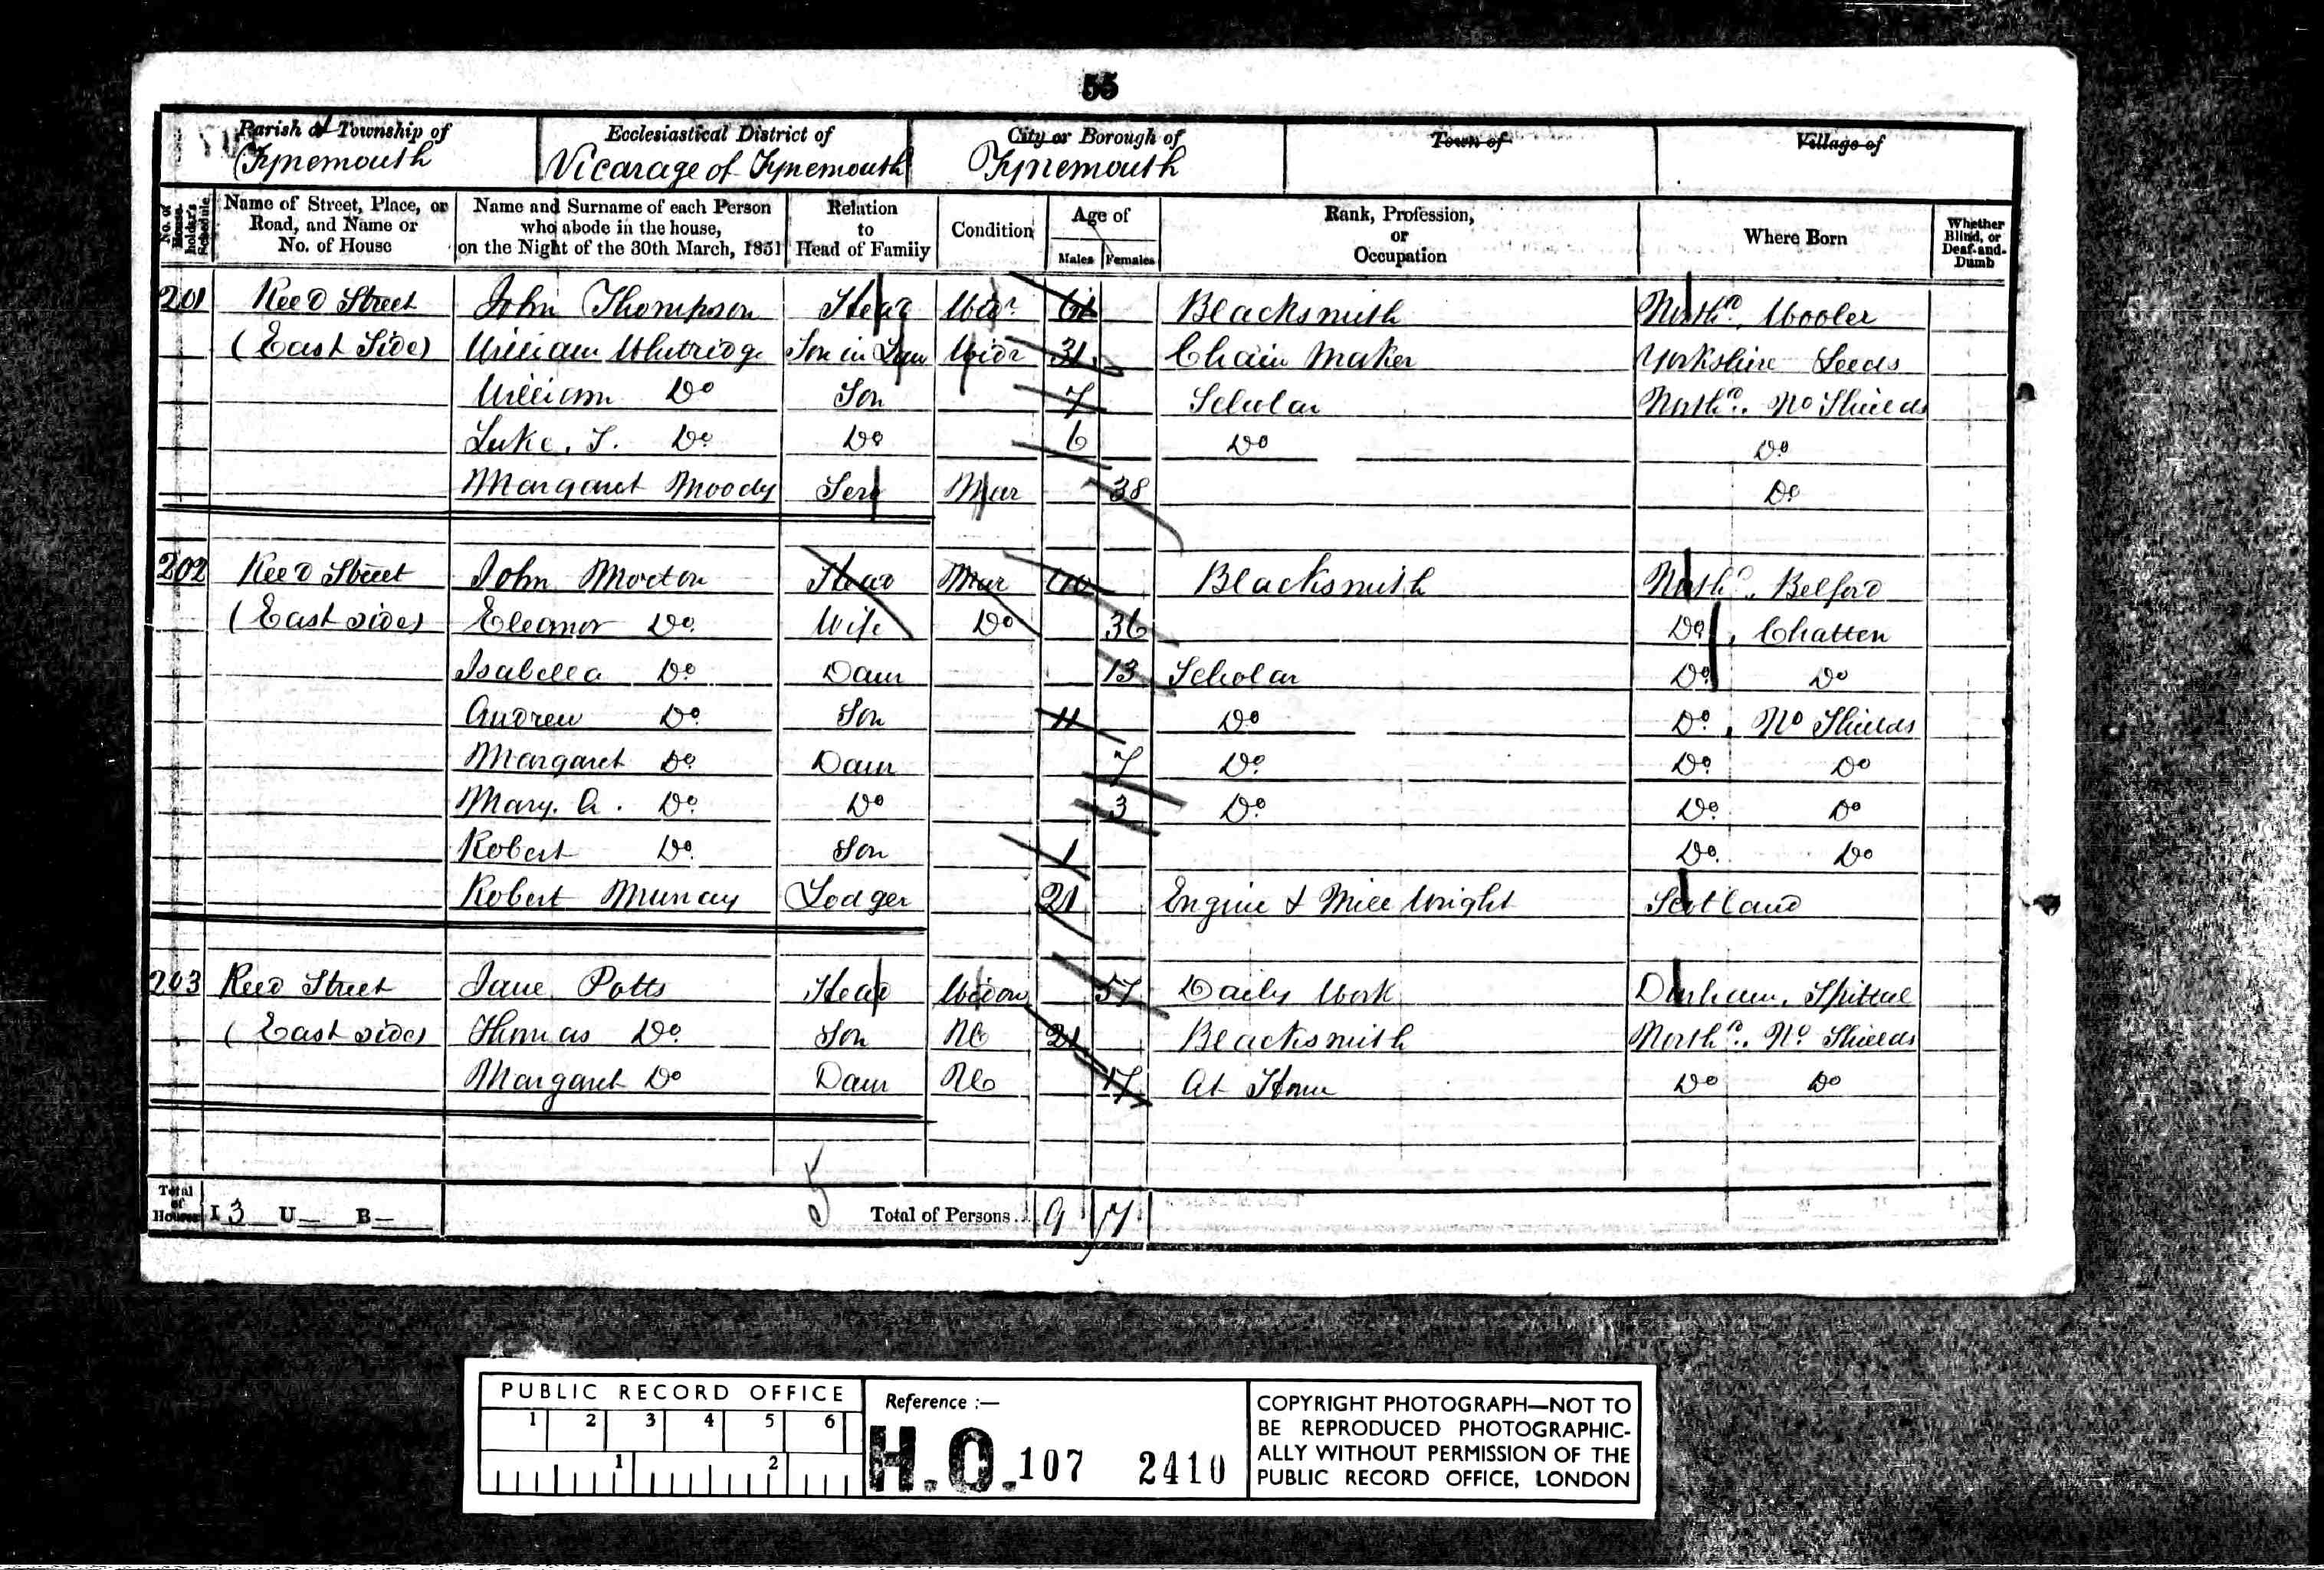 55
Parish or Township of
Tynemouth
Ecclesiastical District of
Vicarage of Tynemouth
City or Borough of
Tynemouth
Town of
Village of
No. of House-holder's Schedule
Name of Street, Place, or Road, and Name or No. of House
Name and Surname of each Person who abode in the house, on the Night of the 30th March, 1851
Relation to Head of Family
Condition
Age of
Males Females
Rank, Profession, or Occupation
Where Born
Whether Blind, or Deaf-and-Dumb
201 Reed Street John Thompson Head Widr Blacksmith Northd. Wooler
(East Side) William Whitridge Son in Law Widr 31 Chain Maker Yorkshire Leeds
William Do Son 7 Scholar Northd. No Shields
Luke. T. Do Do 6 Do Do
Margaret Moody Serv Mar 38 Do
202 Reed Street John Morton Head Mar 40 Blacksmith Northd., Belford
(East side) Eleanor Do. Wife Do 36 Do, Chatten
Isabella Do. Daur 13 Scholar Do. Do
Andrew Do. Son 11 Do Do., No Shields
Margaret Do. Daur 7 Do. Do. Do
Mary. A. Do. Do 3 Do. Do. Do
Robert Do. Son 1 Do. Do
Robert Murray Lodger 21 Engine & Mill Wright Scotland
203 Reed Street Jane Potts Head Widow 57 Daily Work Durham, Spittal
(East side) Thomas Do. Son 21 Blacksmith Northd., No Shields
Margaret Do Daur 17 At Home Do Do
Total of Houses I 3 U — B —
5
Total of Persons... 9 7
PUBLIC RECORD OFFICE
1 2 3 4 5 6
1 2
Reference :—
H.O. 107 2410
COPYRIGHT PHOTOGRAPH—NOT TO
BE REPRODUCED PHOTOGRAPHIC-
ALLY WITHOUT PERMISSION OF THE
PUBLIC RECORD OFFICE, LONDON